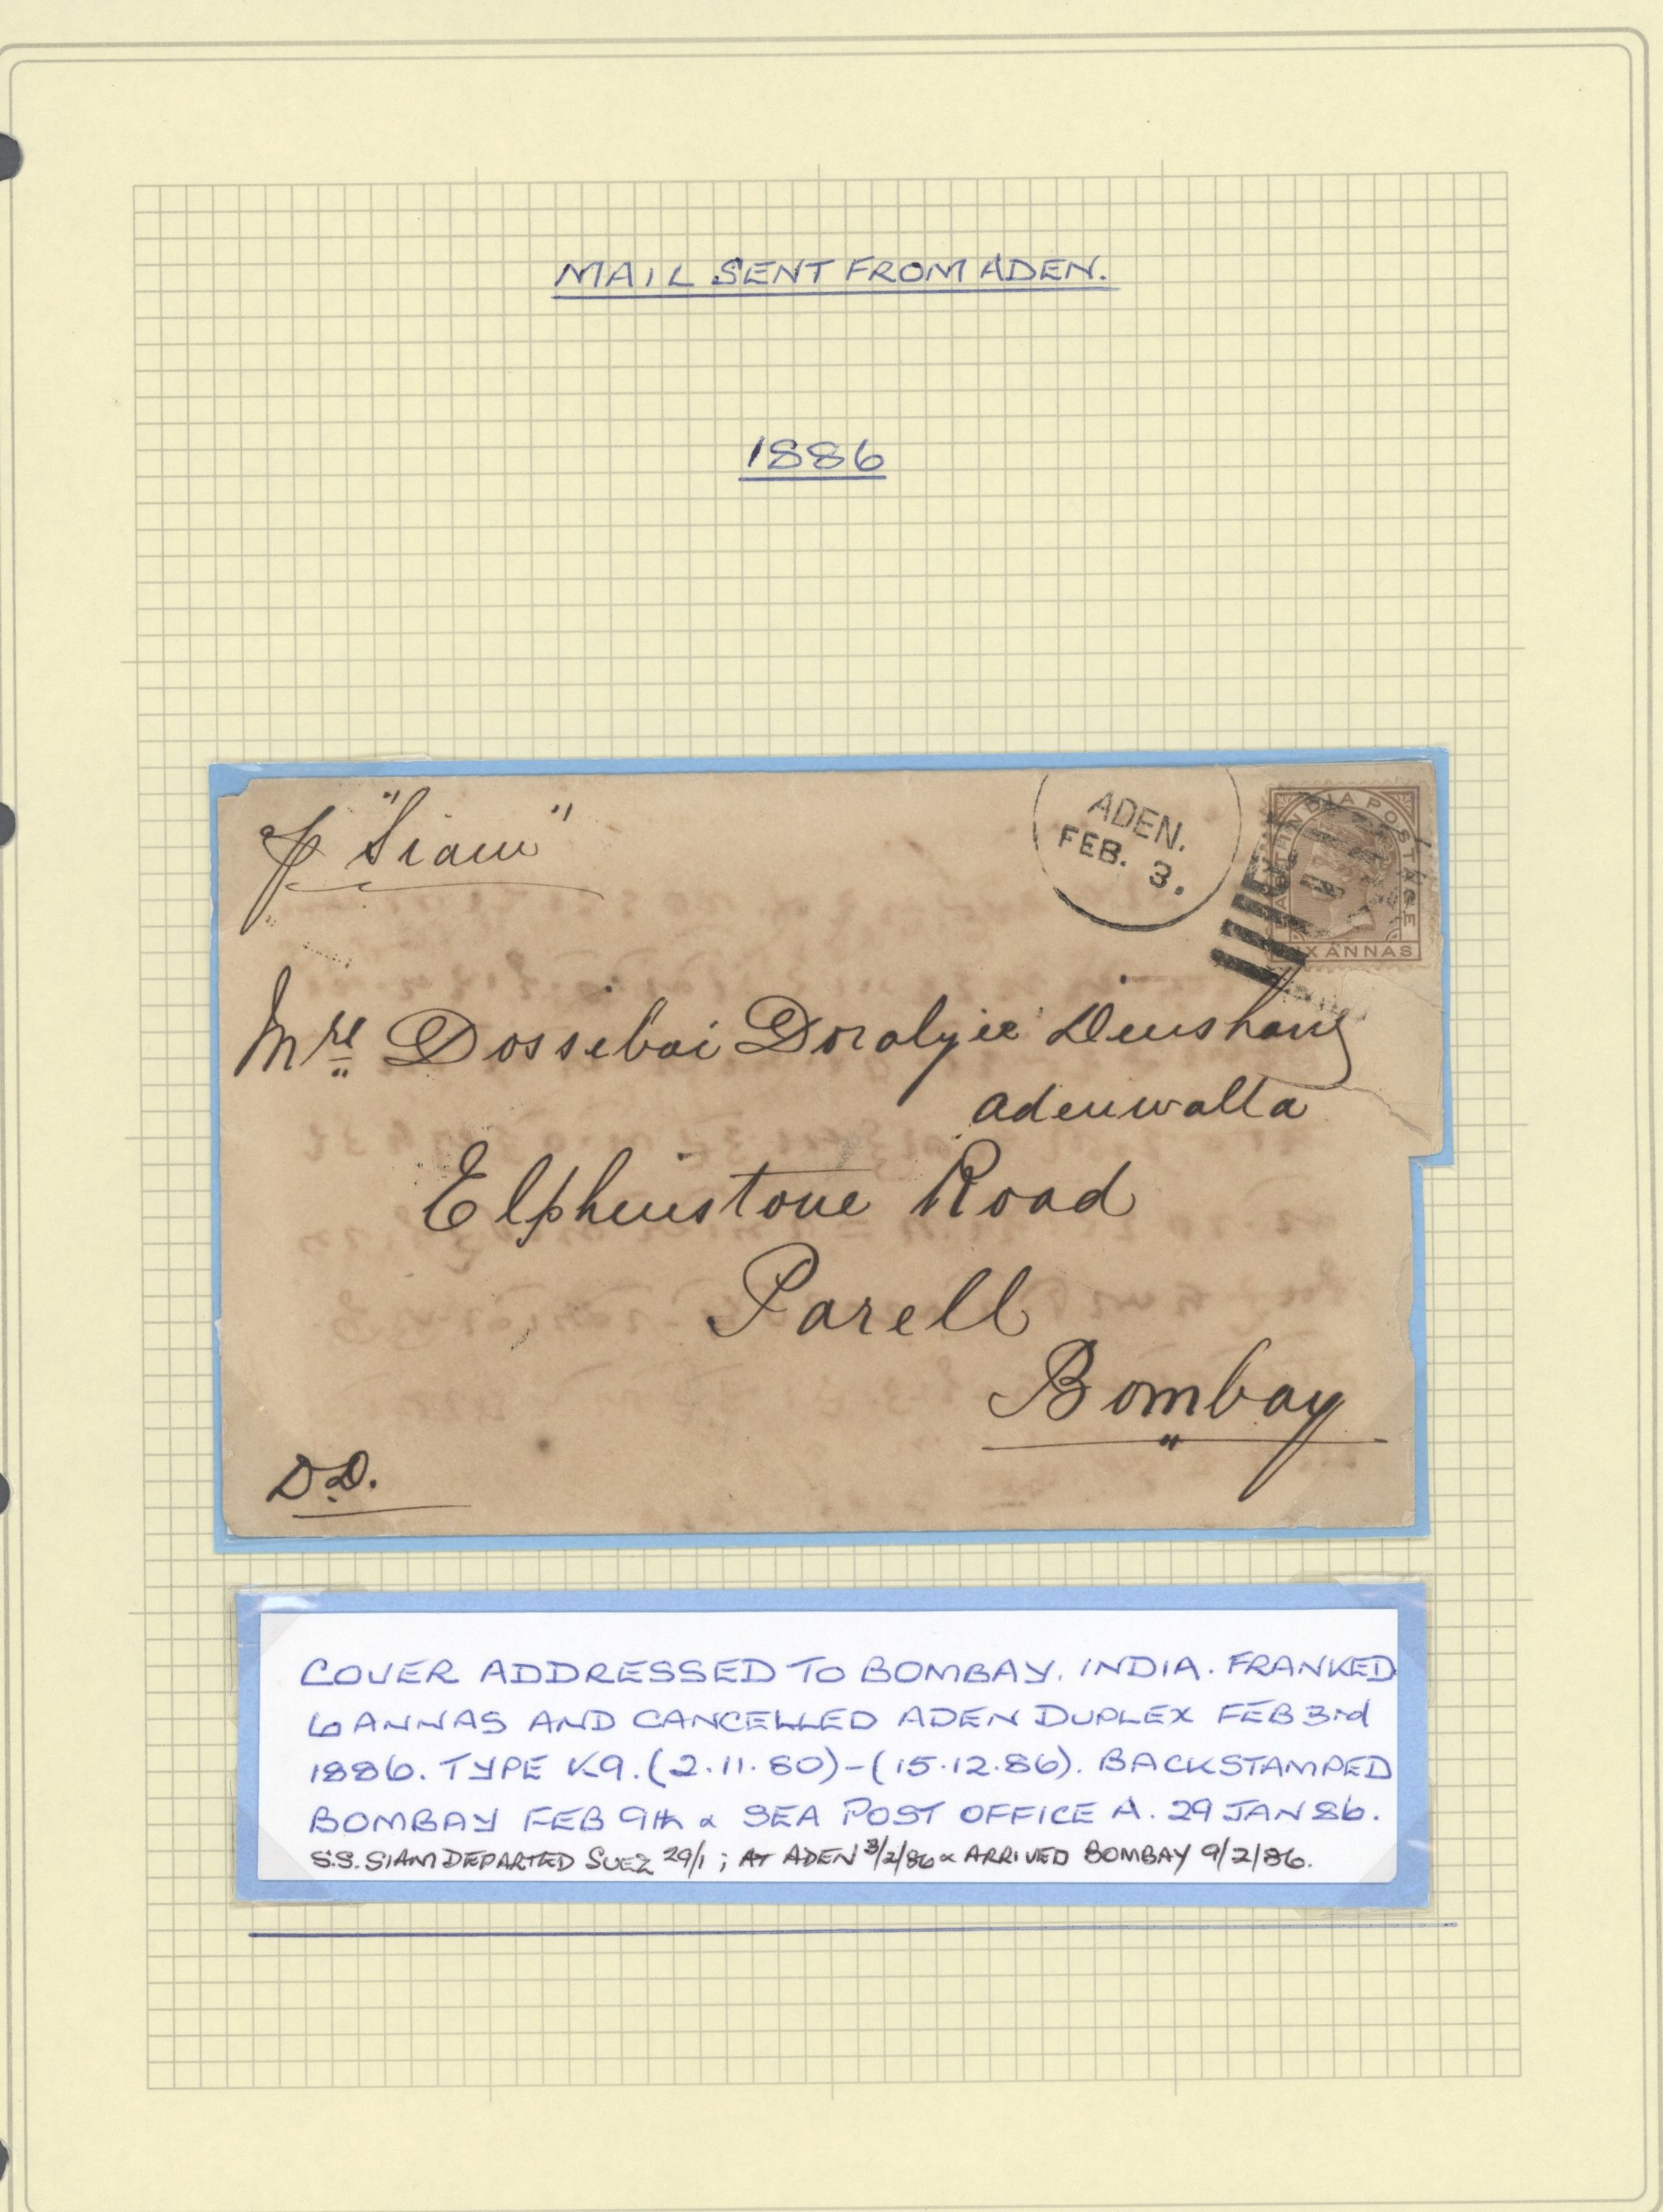 MAIL SENT FROM ADEN.
1886
p "Siam"
ADEN.
FEB. 3.
EAST INDIA POSTAGE
SIX ANNAS
Mrs Dossebai Dorabjee Dinshaw
adenwalla
Elphinstone Road
Parell
Bombay
D.D.
COVER ADDRESSED TO BOMBAY. INDIA. FRANKED
6 ANNAS AND CANCELLED ADEN DUPLEX FEB 3rd
1886. TYPE K9. (2.11.80)-(15.12.86). BACKSTAMPED
BOMBAY FEB 9th & SEA POST OFFICE A. 29 JAN 86.
S.S. SIAM DEPARTED SUEZ 29/1; AT ADEN 3/2/86 & ARRIVED BOMBAY 9/2/86.